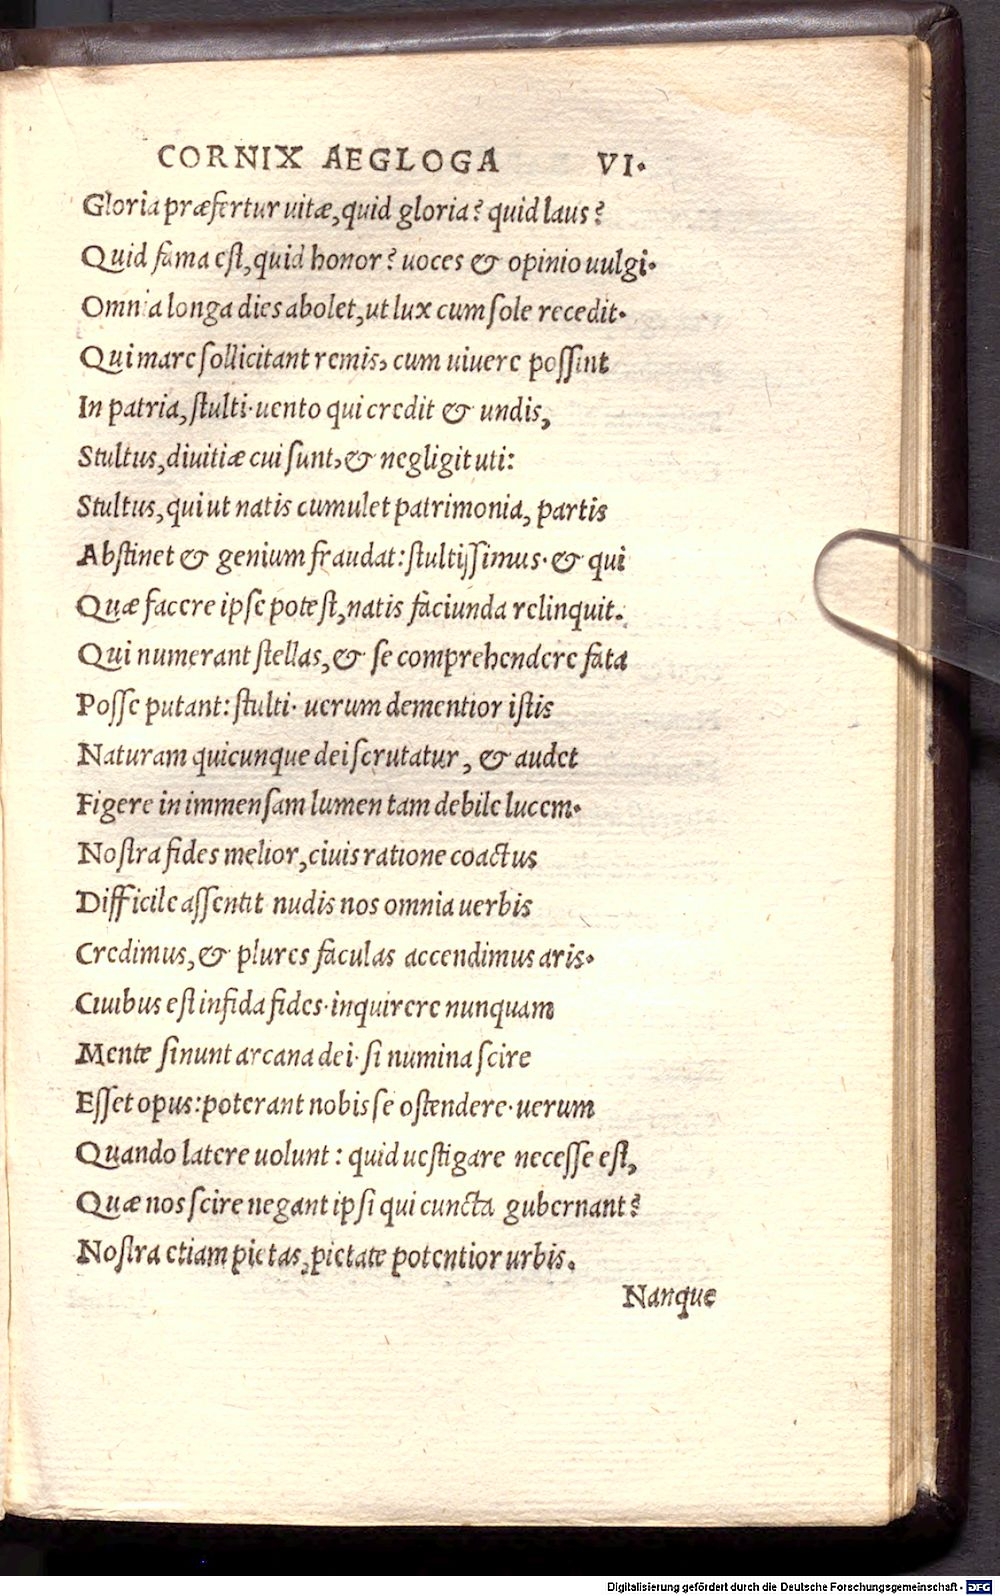 CORNIX AEGLOGA VI.
Gloria præfertur uitæ,quid gloria? quid laus?
Quid fama est,quid honor? uoces & opinio uulgi.
Omnia longa dies abolet,ut lux cum sole recedit.
Qui mare sollicitant remis, cum uiuere possint
In patria,stulti.uento qui credit & undis,
Stultus,diuitiæ cui sunt,& negligit uti:
Stultus,qui ut natis cumulet patrimonia, partis
Abstinet & genium fraudat:stultissimus.& qui
Quæ facere ipse potest,natis faciunda relinquit.
Qui numerant stellas,& se comprehendere fata
Posse putant:stulti. uerum dementior istis
Naturam quicunque dei scrutatur, & audet
Figere in immensam lumen tam debile lucem.
Nostra fides melior,ciuis ratione coactus
Difficile assentit nudis nos omnia uerbis
Credimus,& plures faculas accendimus aris.
Ciuibus est infida fides.inquirere nunquam
Mente sinunt arcana dei. si numina scire
Esset opus:poterant nobis se ostendere.uerum
Quando latere uolunt: quid uestigare necesse est,
Quæ nos scire negant ipsi qui cuncta gubernant?
Nostra etiam pietas,pietate potentior urbis.
Nanque
Digitalisierung gefördert durch die Deutsche Forschungsgemeinschaft - DFG